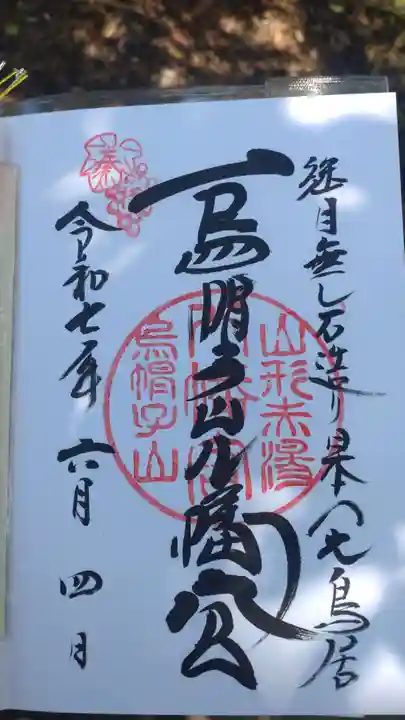 継目無し石造り日本一の大鳥居
烏帽子山八幡宮
山形赤湯
八幡宮
烏帽子山
令和七年 六月 四日